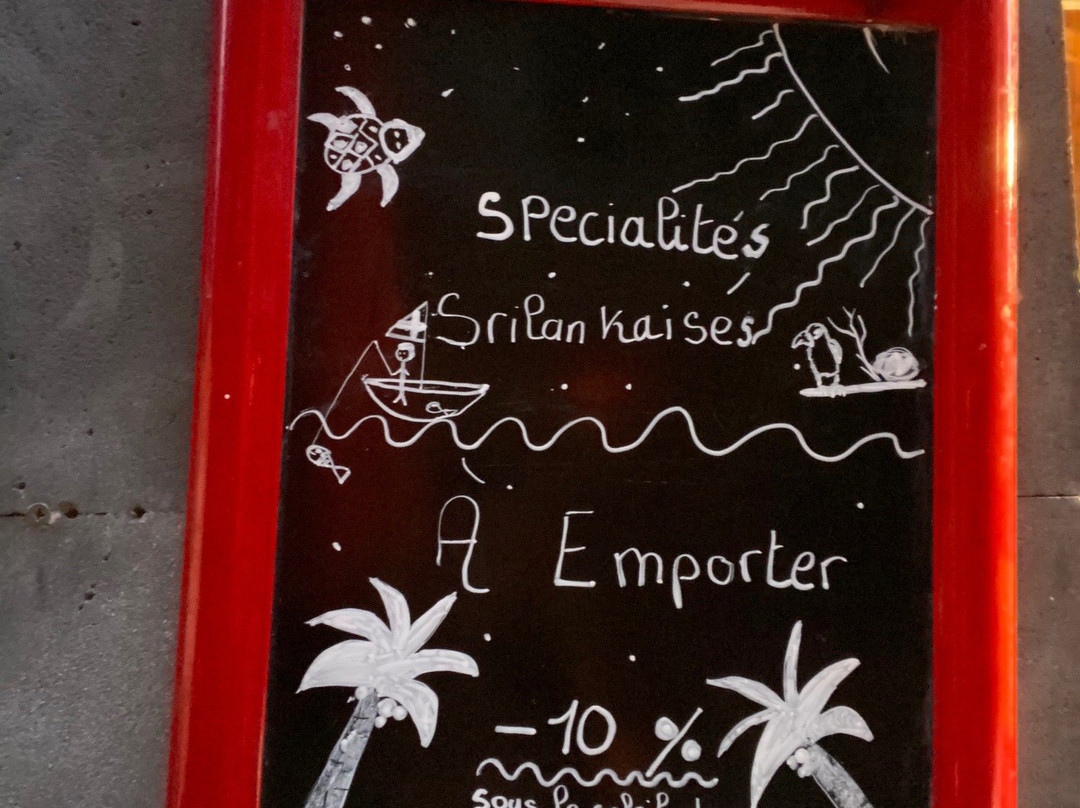 Specialités
Srilankaises
À Emporter
-10 %
sous le soleil